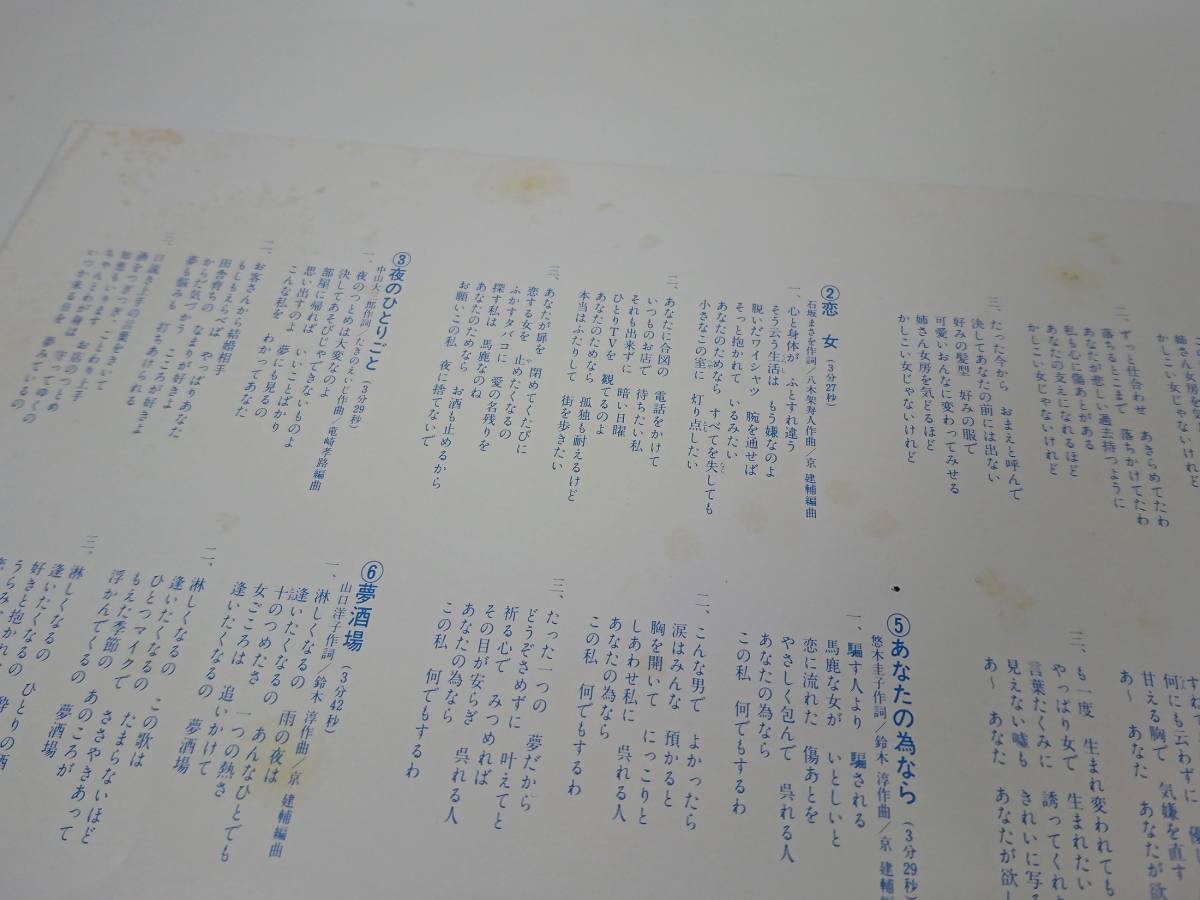 姉さん女房を
かしこい女じゃないけれど
二、ずっと仕合わせ あきらめてたわ
落ちるとこまで 落ちかけてたわ
あなたが悲しい過去持つように
私も心に傷あとがある
あなたの支えになれるほど
かしこい女じゃないけれど
三、たった今から おまえと呼んで
決してあなたの前には出ない
好みの髪型 好みの服で
可愛いおんなに変わってみせる
姉さん女房を気どるほど
かしこい女じゃないけれど
②恋女 (3分27秒)
石坂まさを作詞/八木架寿人作曲/京 建輔編曲
一、心と身体が ふとすれ違う
そう云う生活は もう嫌なのよ
脱いだワイシャツ 腕を通せば
そっと抱かれて いるみたい
あなたのためなら すべてを失しても
小さなこの室に 灯り点したい
二、あなたに合図の 電話をかけて
いつものお店で 待ちたい私
それも出来ずに 暗い日曜
ひとりTVを 観てるのよ
あなたのためなら 孤独も耐えるけど
本当はふたりして 街を歩きたい
三、あなたが扉を 閉めてくたびに
恋する女を 止めたくなるの
ふかすタバコに 愛の名残りを
探す私は 馬鹿なのね
あなたのためなら お酒も止めるから
お願いこの私 夜に捨てないで
③夜のひとりごと (3分29秒)
中山大三郎作詞/たきのえいじ作曲/竜崎孝路編曲
一、夜のつとめは大変なのよ
決してあそびじゃできないものよ
部屋に帰れば いいことばかり
思い出すのよ 夢にも見るの
こんな私を わかってあなた
二、お客さんから結婚相手
もしもえらべば やっぱりあなた
田舎育ちの なまりが好きよ
からだ気づかう こころが好きよ
夢も悩みも 打ちあけられる
三、口説き上手の言葉をきいて
酒をつぎつぎ ことわり上手
知恵もいります お店のつとめ
ちゃんとわが身は 守ってゆくの
いつか来る日を 夢みているの
すね
何にも云わずに 優し
甘える胸で 気嫌を直す
あ〜 あなた あなたが欲
三、も一度 生まれ変われても
やっぱり女で 生まれたい
言葉たくみに 誘ってくれ
見えない嘘も きれいに写る
あ〜 あなた あなたが欲し
⑤あなたの為なら (3分29秒)
悠木圭子作詞/鈴木 淳作曲/京 建輔編
一、騙す人より 騙される
馬鹿な女が いとしいと
恋に流れた 傷あとを
やさしく包んで 呉れる人
あなたの為なら
この私 何でもするわ
二、こんな男で よかったら
涙はみんな 預かると
胸を開いて にっこりと
しあわせ私に 呉れる人
あなたの為なら
この私 何でもするわ
三、たった一つの 夢だから
どうぞさめずに 叶えてと
祈る心で みつめれば
その目が安らぎ 呉れる人
あなたの為なら
この私 何でもするわ
⑥夢酒場 (3分42秒)
山口洋子作詞/鈴木 淳作曲/京 建輔編曲
一、淋しくなるの 雨の夜は
逢いたくなるの あんなひとでも
十のつめたさ 一つの熱さ
女ごころは 追いかけて
逢いたくなるの 夢酒場
二、淋しくなるの この歌は
逢いたくなるの たまらないほど
ひとつマイクで ささやきあって
もえた季節の あのころが
浮かんでくるの 夢酒場
三、淋しくなるの ひとりの酒
逢いたくなるの 酔
好きと抱かれ
うらみ